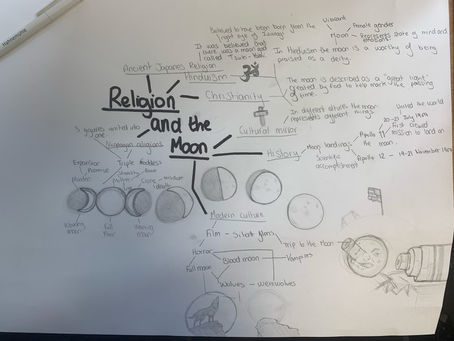 Religion
and the
Moon
Ancient Japanes Religion
Believed to have been born from the
right eye of Izanagi
It was believed that
there was a moon god
called
Hinduism
Vibrant
Moon
Female gender
Represents state of mind and
emotions
In Hinduism the moon is a worthy of being
praised as a deity.
Christianity
The moon is described as a "great light"
created by God to help mark the passing
of time.
Cultural mirror
In different cultures the moon
represents different things.
History
Moon landings
Scientific
accomplishments
Apollo
11
20-21 July 1969
first crewed
mission to land on
the moon.
Apollo 12 - 19-21 November 1969
3 figures united into
one
religions
Triple Goddess
Expansion
Promise
Maiden
Mother
Crone
wisdom
death
Waxing
moon
Full
Moon
Waning
moon
Modern culture
Film - Silent films
Trip to the Moon
Horror
Blood moon
Vampires
Full moon
Wolves - werewolves